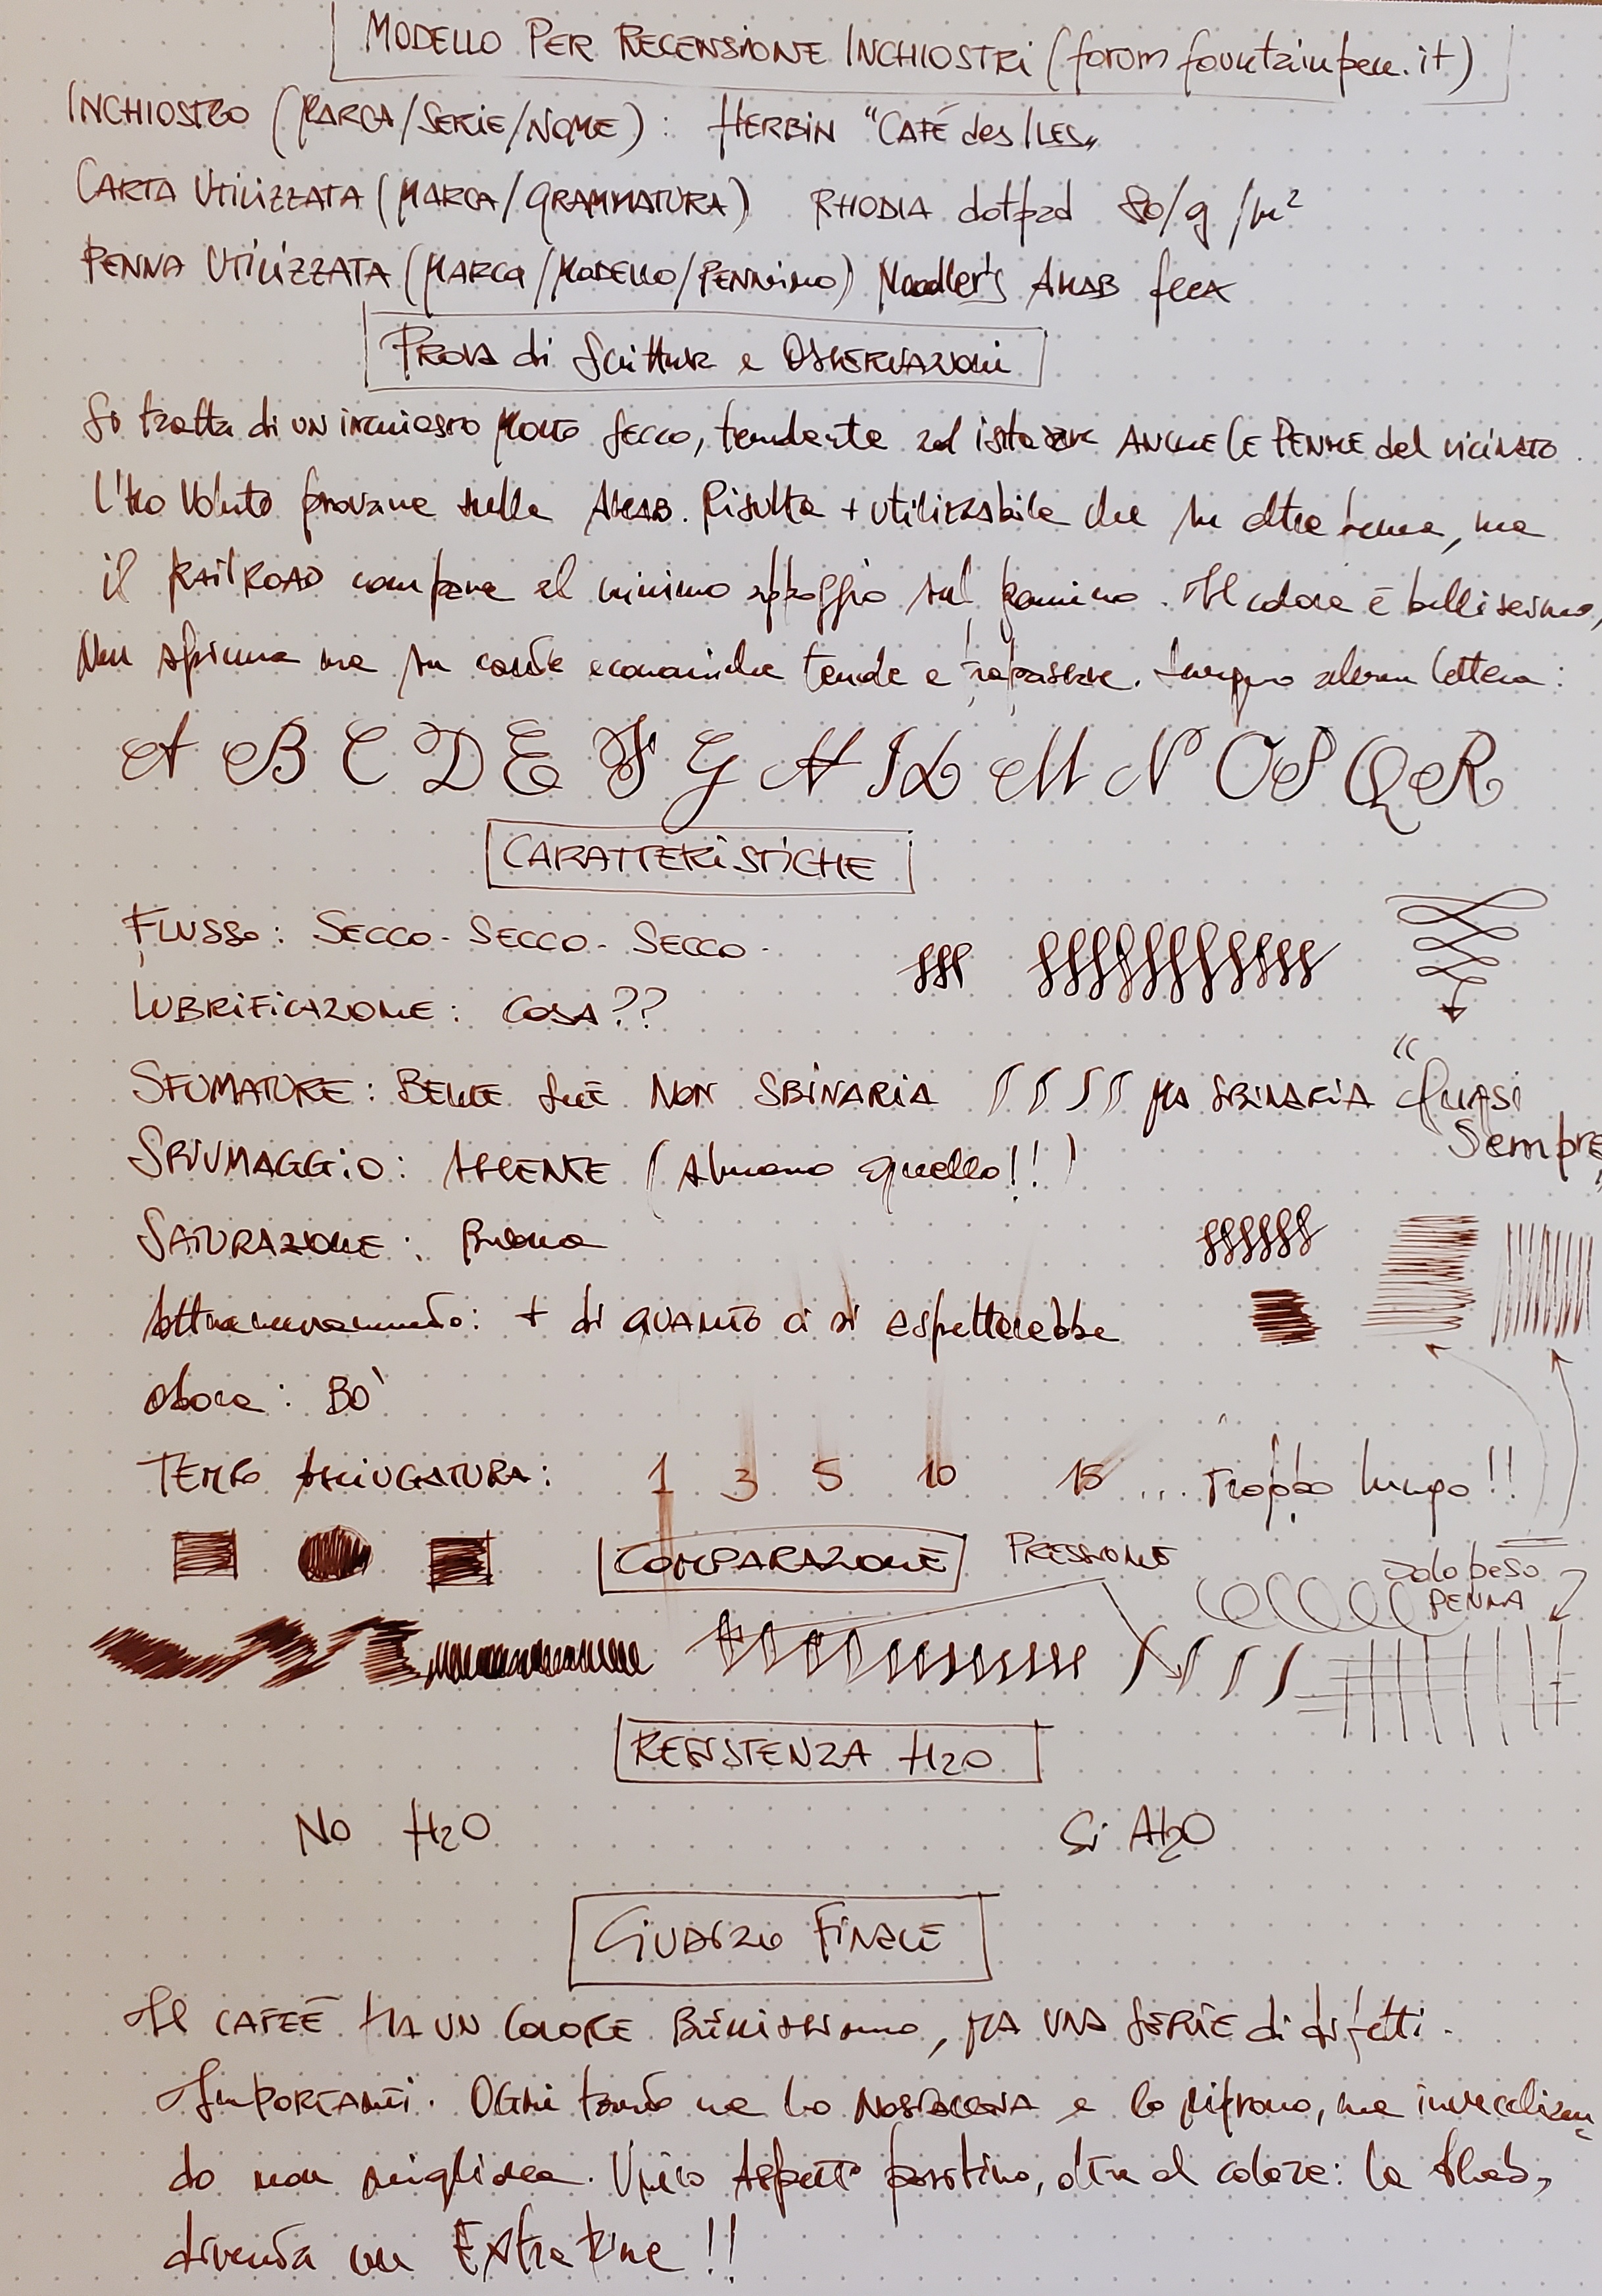 MODELLO PER RECENSIONE INCHIOSTRI (forum fountainpen.it)
INCHIOSTRO (MARCA/SERIE/NOME): HERBIN "CAFÉ des ILES"
CARTA UTILIZZATA (MARCA/GRAMMATURA) RHODIA dotpad 80/g/m²
PENNA UTILIZZATA (MARCA/MODELLO/PENNINO) Noodler's AHAB flex
PROVA di Scrittura e OSSERVAZIONI
Si tratta di un inchiostro MOLTO Secco, tendente ad ANCHE LE PENNE del vicinato.
L'ho voluto provare sulla AHAB. Risulta + utilizzabile che su altre penne, ma
il RAILROAD compare al minimo appoggio sul pennino. Il colore è bellissimo,
Non spiuma ma su carte economiche tende a trapassare. Seguono alcune lettere:
A B C D E F G H I L M N O P Q R
CARATTERISTICHE
FLUSSO: SECCO - SECCO - SECCO -
LUBRIFICAZIONE: COSA??
SFUMATURE: BELLE SE NON SBINARIA MA SBINARIA "QUASI
Sempre"
SPIUMAGGIO: ASSENTE (Almeno quello!!)
SATURAZIONE: Buona
Attraversamento: + di QUANTO ci si aspetterebbe
odore: BO'
TEMPO ASCIUGATURA: 1 3 5 10 15 ... Troppo lungo!!
COMPARAZIONE PRESSIONE
solo peso
PENNA
RESISTENZA H2O
NO H2O Si H2O
GIUDIZIO FINALE
Il CAFÉ HA UN COLORE BELLISSIMO, MA UNA SERIE di difetti
IMPORTANTI. OGNI tanto ne ho NOSTALGIA e lo riprovo, ma invecchian
do non migliora. Unico Aspetto positivo, oltre al colore: la Ahab,
diventa un Extra Fine!!